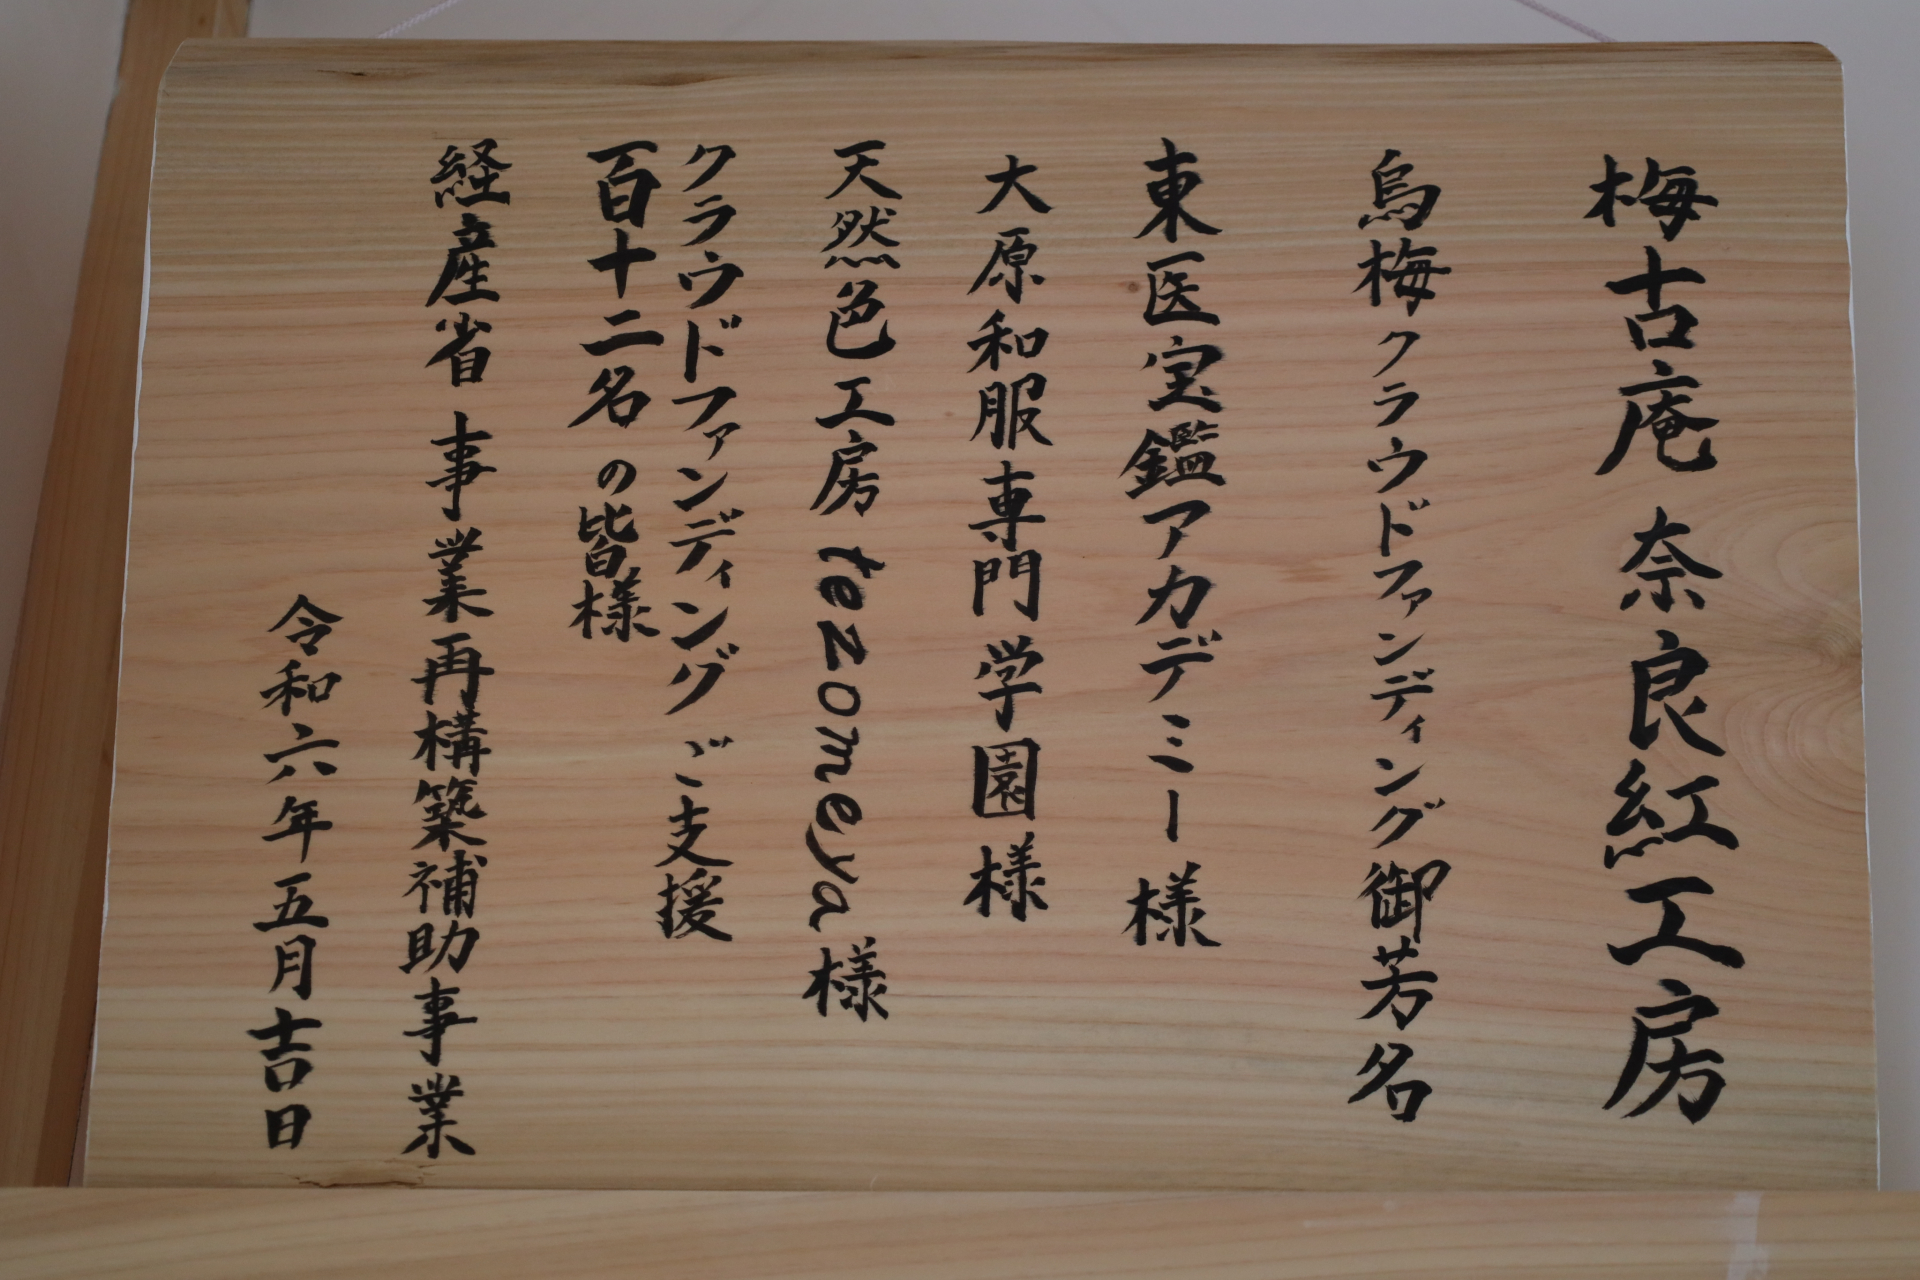 梅古庵 奈良紅工房
烏梅クラウドファンディング御芳名
東医宝鑑アカデミー様
大原和服専門学園様
天然色工房 tezomeya様
クラウドファンディング ご支援
百十二名の皆様
経産省 事業再構築補助事業
令和六年五月吉日